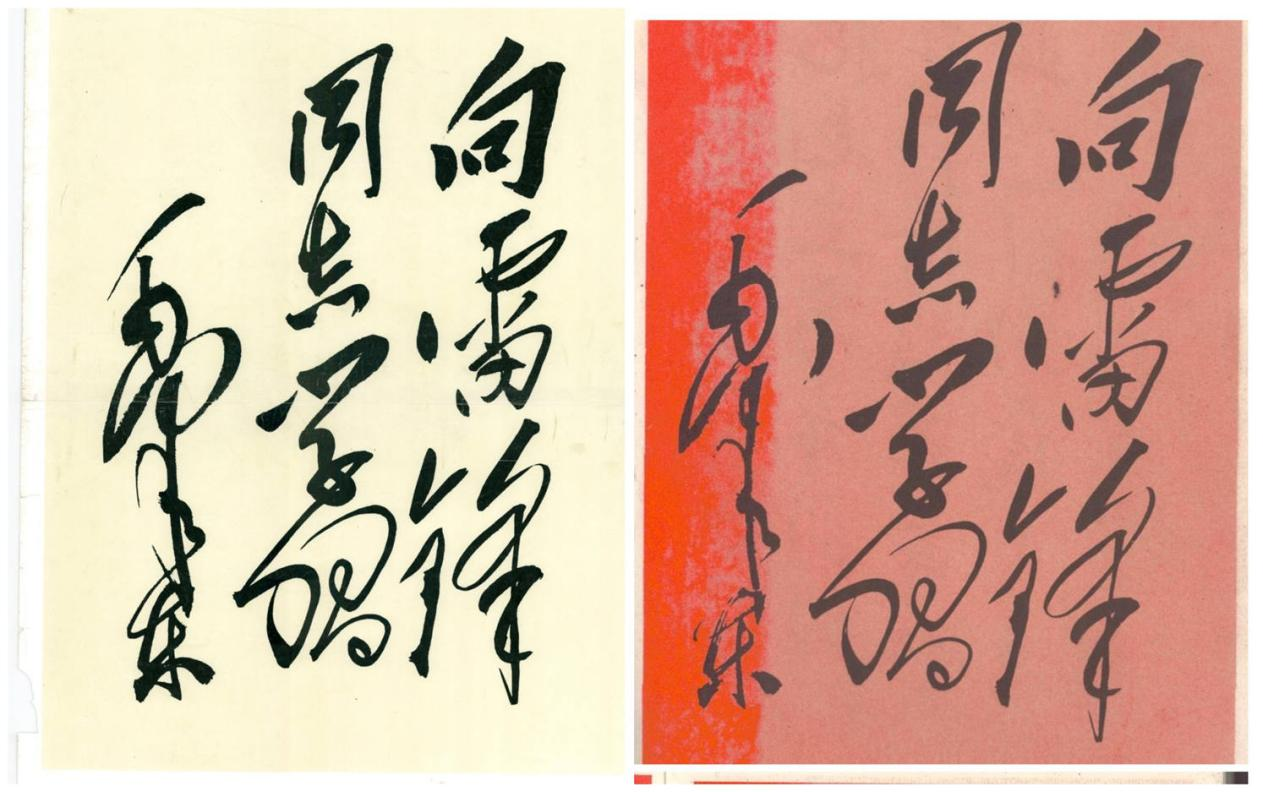 向雷锋
同志学习
毛泽东
向雷锋
同志学习
毛泽东